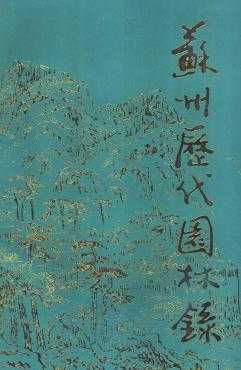 蘇州歷代園林錄